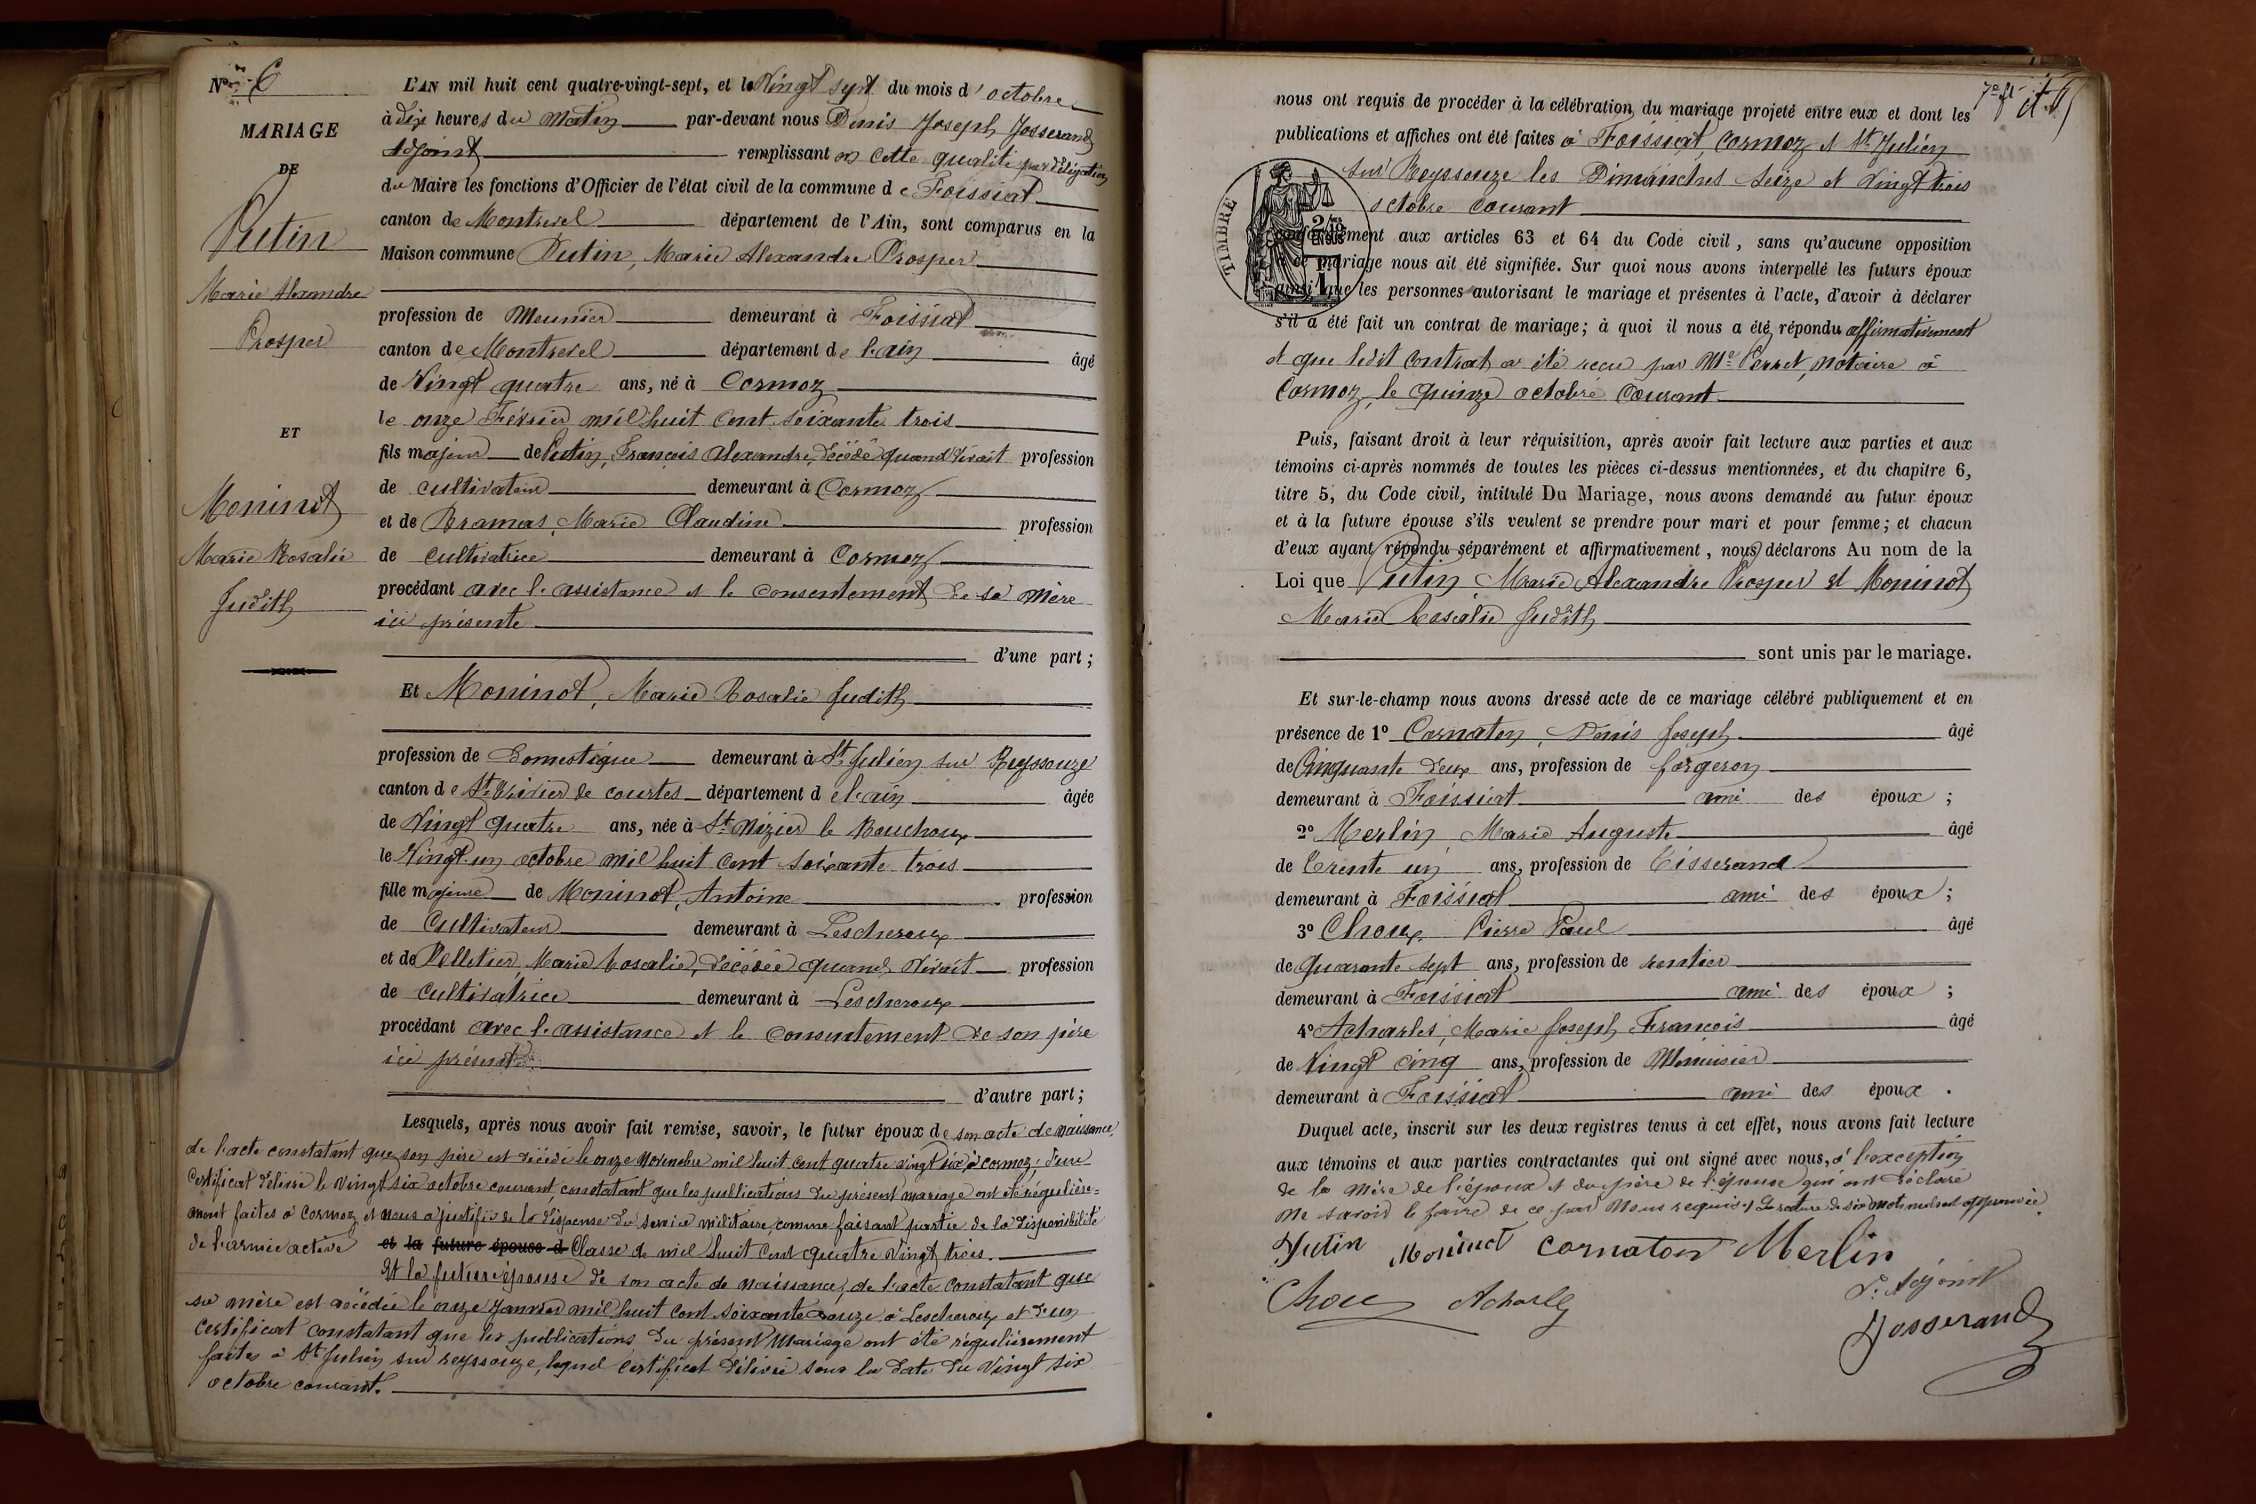 No 6
MARIAGE
DE
Putin
Marie Alexandre
Prosper
ET
Moninot
Marie Rosalie
Judith
L'AN mil huit cent quatre-vingt-sept, et le Vingt sept du mois d'octobre
à dix heures du Matin par-devant nous Denis Joseph Josserand
Adjoint remplissant en cette qualité par délégation
du Maire les fonctions d'Officier de l'état civil de la commune de Foissiat
canton de Montrevel département de l'Ain, sont comparus en la
Maison commune Putin, Marie Alexandre Prosper
profession de Meunier demeurant à Foissiat
canton de Montrevel département de l'ain âgé
de Vingt quatre ans, né à Cormoz
le onze Février mil huit cent soixante trois
fils majeur de Putin, François Alexandre, décédé quand vivait profession
de cultivateur demeurant à Cormoz
et de Bramas, Marie Claudine profession
de cultivatrice demeurant à Cormoz
procédant avec l'assistance et le consentement de sa mère
ici présente
d'une part ;
Et Moninot, Marie Rosalie Judith
profession de Domestique demeurant à St Julien sur Reyssouze
canton de St Trivier de courtes département de l'ain âgée
de Vingt quatre ans, née à St Nizier le Bouchoux
le Vingt un octobre mil huit cent soixante trois
fille majeure de Moninot, Antoine profession
de Cultivateur demeurant à Lescheroux
et de Pelletier, Marie Rosalie, décédée quand vivait profession
de Cultivatrice demeurant à Lescheroux
procédant avec l'assistance et le consentement de son père
ici présent
d'autre part ;
Lesquels, après nous avoir fait remise, savoir, le futur époux de son acte de naissance,
de l'acte constatant que son père est décédé le onze Novembre mil huit cent quatre vingt six à cormoz, d'un
Certificat délivré le vingt six octobre courant, constatant que les publications du présent mariage ont été régulière=
ment faites à Cormoz et nous a justifié de la dispense du service militaire, comme faisant partie de la disponibilité
de l'armée active et la future épouse d Classe de mil huit cent quatre vingt trois.
Et la future épouse de son acte de naissance, de l'acte constatant que
sa mère est décédée le onze Janvier mil huit cent soixante à Lescheroux et d'un
Certificat constatant que les publications du présent Mariage ont été régulièrement
faites à St Julien sur reyssouze, lequel certificat délivré sous la date du Vingt six
octobre courant.
7e ft
nous ont requis de procéder à la célébration du mariage projeté entre eux et dont les
publications et affiches ont été faites à Foissiat, Cormoz et St Julien
sur Reyssouze les Dimanches Seize et Vingt trois
octobre courant
TIMBRE
conformément aux articles 63 et 64 du Code civil, sans qu'aucune opposition
de mariage nous ait été signifiée. Sur quoi nous avons interpellé les futurs époux
ainsi que les personnes autorisant le mariage et présentes à l'acte, d'avoir à déclarer
s'il a été fait un contrat de mariage ; à quoi il nous a été répondu affirmativement
et que ledit Contrat a été reçu par Me Perret, Notaire à
Cormoz, le quinze octobre Courant
Puis, faisant droit à leur réquisition, après avoir fait lecture aux parties et aux
témoins ci-après nommés de toutes les pièces ci-dessus mentionnées, et du chapitre 6,
titre 5, du Code civil, intitulé Du Mariage, nous avons demandé au futur époux
et à la future épouse s'ils veulent se prendre pour mari et pour femme ; et chacun
d'eux ayant répondu séparément et affirmativement, nous déclarons Au nom de la
Loi que Putin Marie Alexandre Prosper et Moninot
Marie Rosalie Judith
sont unis par le mariage.
Et sur-le-champ nous avons dressé acte de ce mariage célébré publiquement et en
présence de 1o Cornaton, Denis Joseph âgé
de Cinquante deux ans, profession de forgeron
demeurant à Foissiat ami des époux ;
2o Merlin, Marie Auguste âgé
de Trente un ans, profession de Tisserand
demeurant à Foissiat ami des époux ;
3o Choux Pierre Paul âgé
de Quarante sept ans, profession de rentier
demeurant à Foissiat ami des époux ;
4o Acharles, Marie Joseph François âgé
de Vingt cinq ans, profession de Menuisier
demeurant à Foissiat ami des époux .
Duquel acte, inscrit sur les deux registres tenus à cet effet, nous avons fait lecture
aux témoins et aux parties contractantes qui ont signé avec nous, à l'exception
de la mère de l'époux et du père de l'épouse qui ont déclaré
ne savoir le faire de ce par Nous requis. La rature de six mots nuls est approuvée.
Putin Moninot Cornaton Merlin
Choux Acharles
L'Adjoint
Josserand